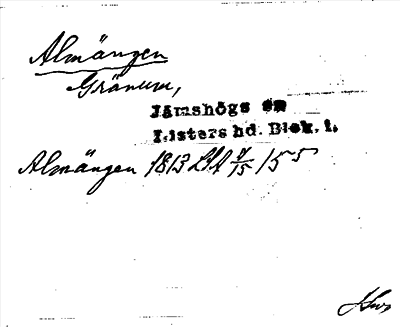 Almängen
Gränum,
Jämshögs sn
Listers hd. Blek. l.
Almängen 1813 LSA 7/15 155